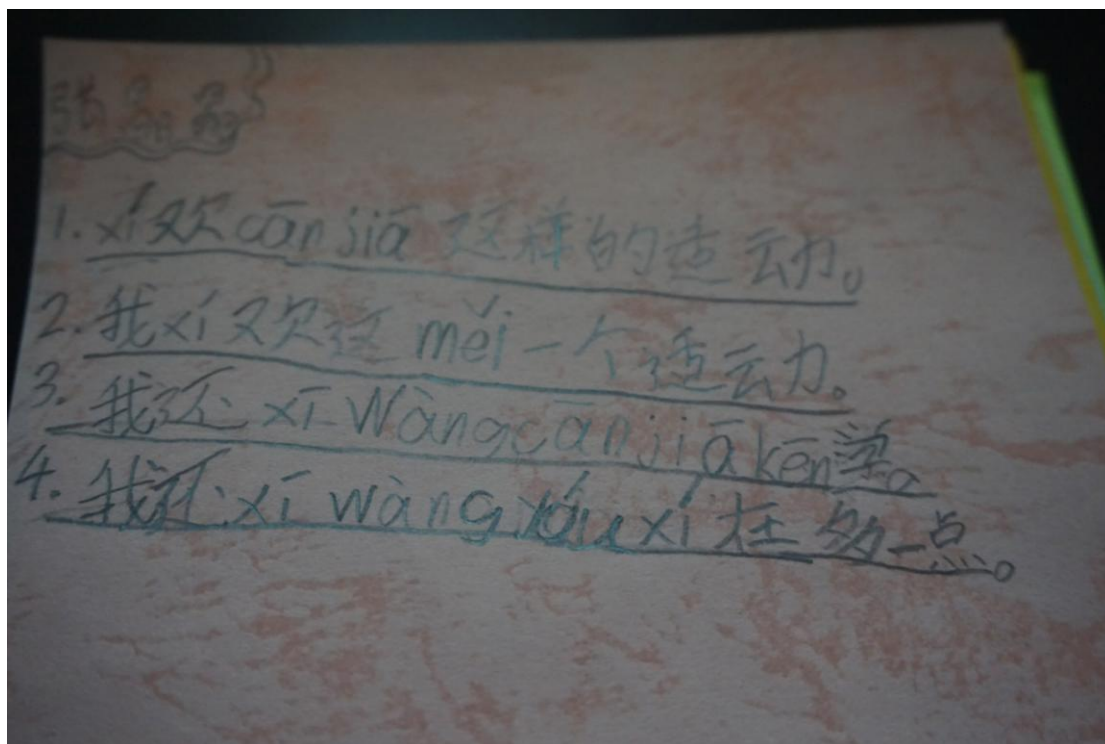 张晶晶
1. xí欢cānjiā这样的适云力。
2. 我xí欢这měi一个适云力。
3. 我还xīWàngcānjiākēn学。
4. 我还xīwàngyóuxí在多一点。